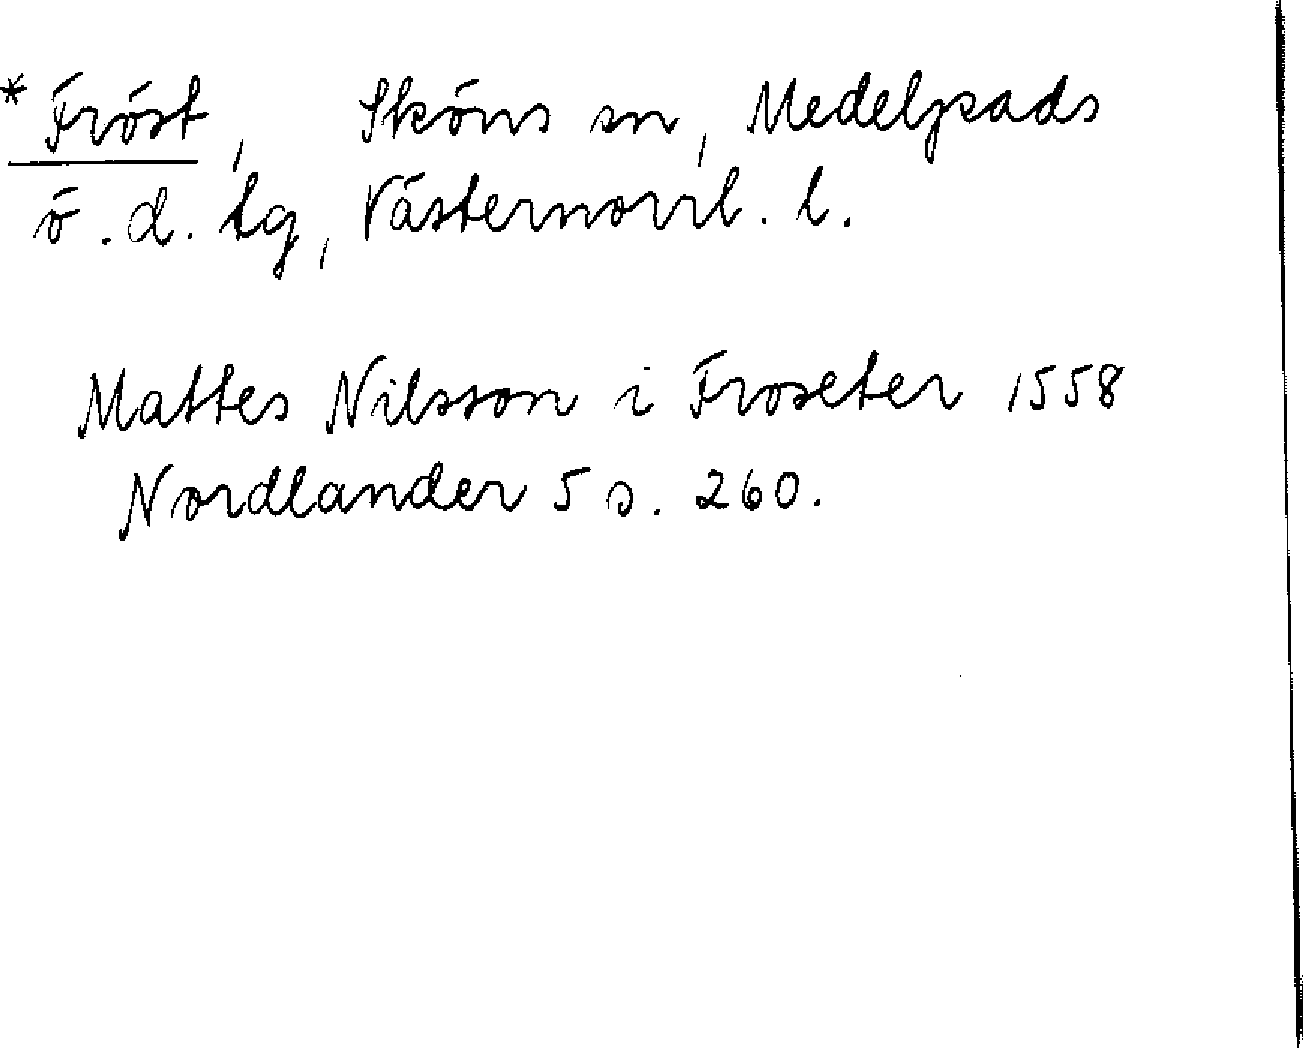 *Fröst, Sköns sn, Medelpads
ö. d. tg, Västernorrl. l.
Mattes Nilsson i Froseter 1558
Nordlander 5 s. 260.